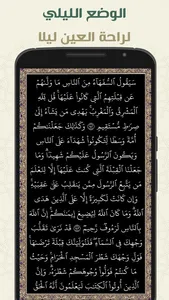 الوضع الليلي
لراحة العين ليلا
سَيَقُولُ ٱلسُّفَهَآءُ مِنَ ٱلنَّاسِ مَا وَلَّىٰهُمْ
عَن قِبْلَتِهِمُ ٱلَّتِي كَانُواْ عَلَيْهَاۚ قُل لِّلَّهِ
ٱلْمَشْرِقُ وَٱلْمَغْرِبُۚ يَهْدِي مَن يَشَآءُ إِلَىٰ
صِرَٰطٍ مُّسْتَقِيمٍ ١٤٢ وَكَذَٰلِكَ جَعَلْنَٰكُمْ
أُمَّةً وَسَطًا لِّتَكُونُواْ شُهَدَآءَ عَلَى ٱلنَّاسِ
وَيَكُونَ ٱلرَّسُولُ عَلَيْكُمْ شَهِيدًاۗ وَمَا جَعَلْنَا
ٱلْقِبْلَةَ ٱلَّتِي كُنتَ عَلَيْهَآ إِلَّا لِنَعْلَمَ
مَن يَتَّبِعُ ٱلرَّسُولَ مِمَّن يَنقَلِبُ عَلَىٰ عَقِبَيْهِۚ
وَإِن كَانَتْ لَكَبِيرَةً إِلَّا عَلَى ٱلَّذِينَ هَدَى ٱللَّهُۗ
وَمَا كَانَ ٱللَّهُ لِيُضِيعَ إِيمَٰنَكُمْۚ إِنَّ ٱللَّهَ
بِٱلنَّاسِ لَرَءُوفٌ رَّحِيمٌ ١٤٣ قَدْ نَرَىٰ تَقَلُّبَ
وَجْهِكَ فِي ٱلسَّمَآءِۖ فَلَنُوَلِّيَنَّكَ قِبْلَةً تَرْضَىٰهَاۚ فَوَلِّ
وَجْهَكَ شَطْرَ ٱلْمَسْجِدِ ٱلْحَرَامِۚ وَحَيْثُ
مَا كُنتُمْ فَوَلُّواْ وُجُوهَكُمْ شَطْرَهُۥۗ وَإِنَّ
ٱلَّذِينَ أُوتُواْ ٱلْكِتَٰبَ لَيَعْلَمُونَ أَنَّهُ ٱلْحَقُّ